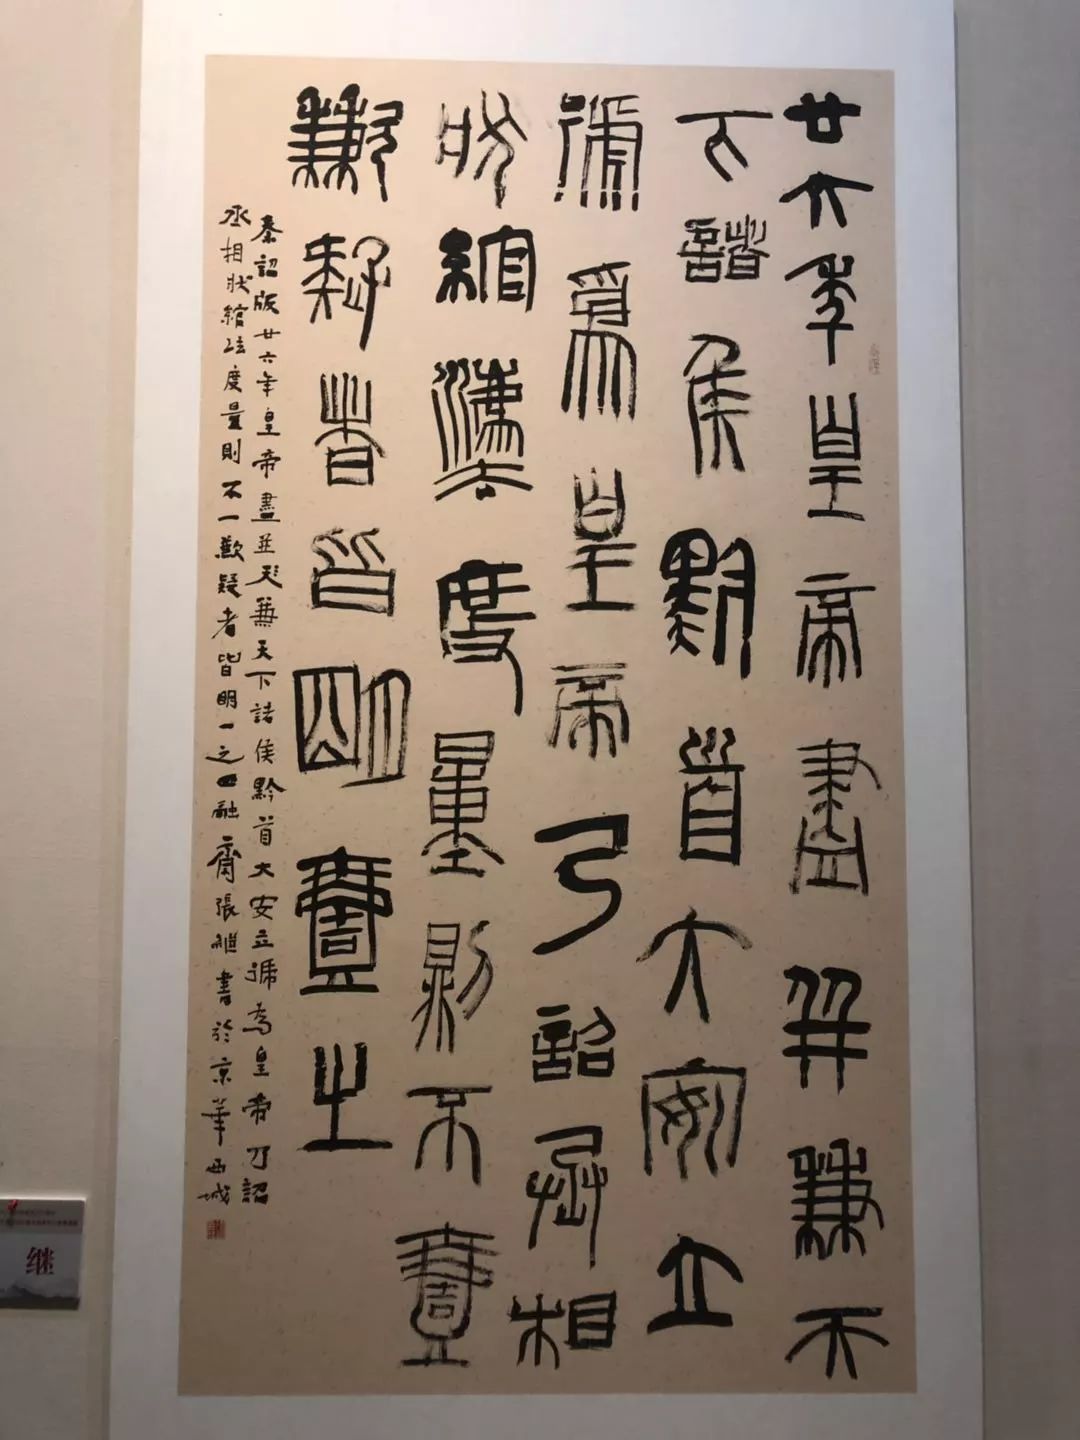 廿六年皇帝盡并兼天
下諸侯黔首大安立
號為皇帝乃詔丞相
狀綰灋度量則不壹
歉疑者皆明壹之
秦詔版廿六年皇帝盡並兼天下諸侯黔首大安立號為皇帝乃詔
丞相狀綰法度量則不一歉疑者皆明一之融齋張繼書於京華西城
继